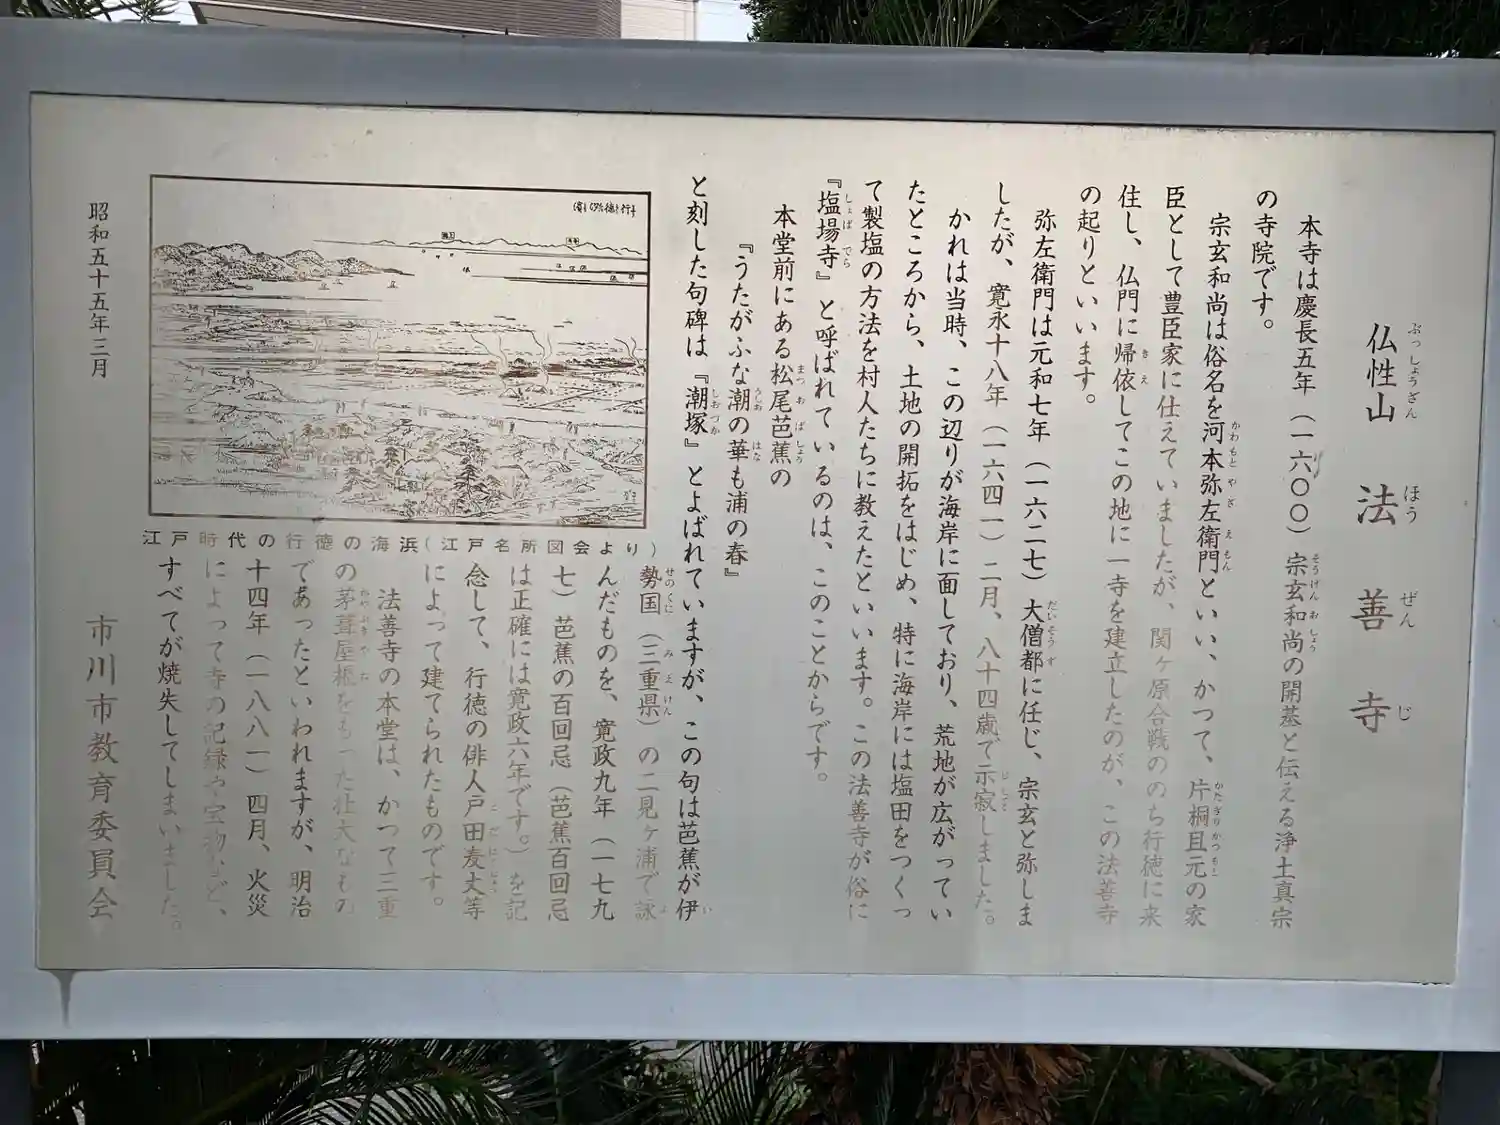 仏性山　法善寺
ぶっしょうざん　ほうぜんじ
本寺は慶長五年（一六〇〇）宗玄和尚の開基と伝える浄土真宗
の寺院です。
宗玄和尚は俗名を河本弥左衛門といい、かつて、片桐且元の家
臣として豊臣家に仕えていましたが、関ヶ原合戦ののち行徳に来
住し、仏門に帰依してこの地に一寺を建立したのが、この法善寺
の起りといいます。
弥左衛門は元和七年（一六二七）大僧都に任じ、宗玄と弥しま
したが、寛永十八年（一六四一）二月、八十四歳で示寂しました。
かれは当時、この辺りが海岸に面しており、荒地が広がってい
たところから、土地の開拓をはじめ、特に海岸には塩田をつくっ
て製塩の方法を村人たちに教えたといいます。この法善寺が俗に
『塩場寺』と呼ばれているのは、このことからです。
本堂前にある松尾芭蕉の
『うたがふな潮の華も浦の春』
と刻した句碑は『潮塚』とよばれていますが、この句は芭蕉が伊
勢国（三重県）の二見ヶ浦で詠
んだものを、寛政九年（一七九
七）芭蕉の百回忌（芭蕉百回忌
は正確には寛政六年です。）を記
念して、行徳の俳人戸田麦丈等
によって建てられたものです。
法善寺の本堂は、かつて三重
の茅葺屋根をもった壮大なもの
であったといわれますが、明治
十四年（一八八一）四月、火災
によって寺の記録や宝物など、
すべてが焼失してしまいました。
江戸時代の行徳の海浜（江戸名所図会より）
昭和五十五年三月
市川市教育委員会